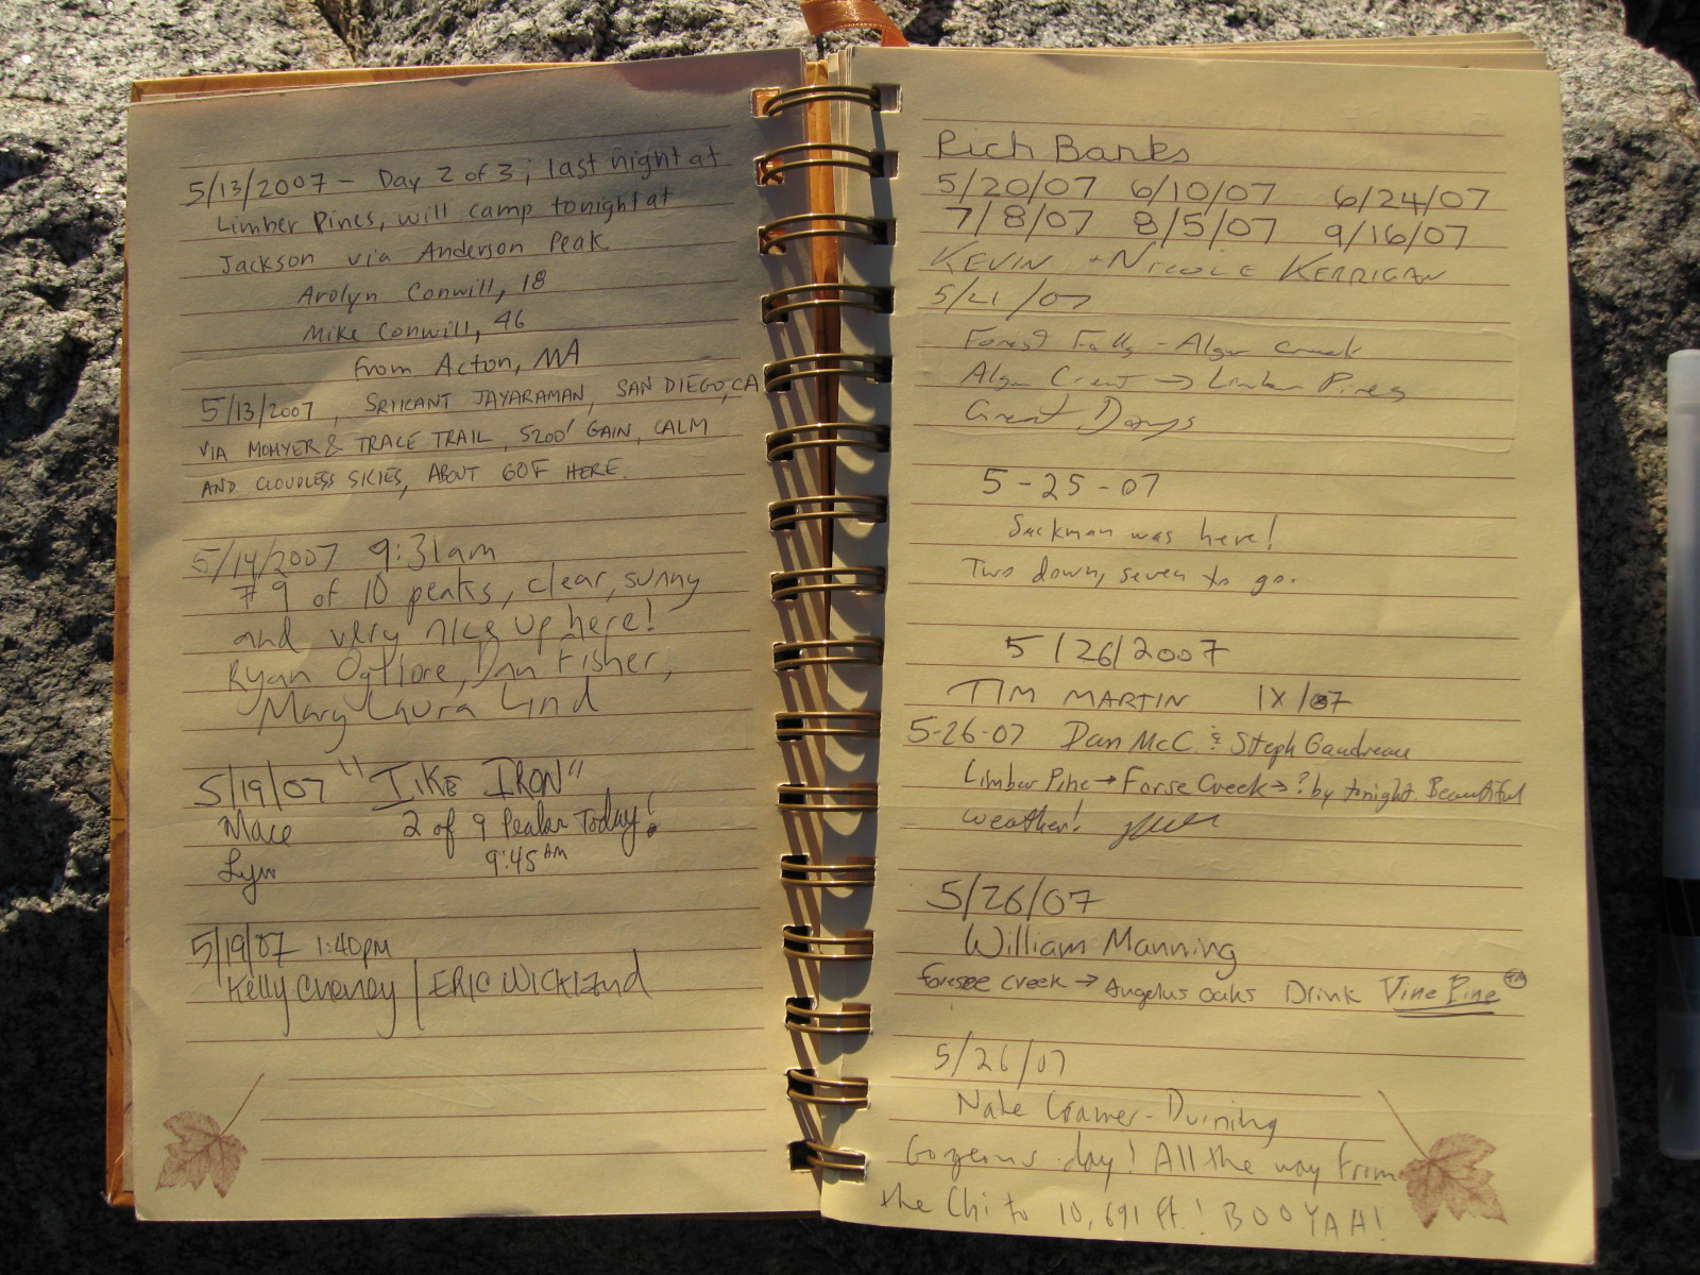 5/13/2007 - Day 2 of 3; last night at
Limber Pines, will camp tonight at
Jackson via Anderson Peak
Arolyn Conwill, 18
Mike Conwill, 46
from Acton, MA
5/13/2007, SRIKANT JAYARAMAN, SAN DIEGO, CA
VIA MOMYER & TRACE TRAIL, 5200' GAIN, CALM
AND CLOUDLESS SKIES, ABOUT 60F HERE.
5/14/2007 9:31am
#9 of 10 peaks, clear, sunny
and very nice up here!
Ryan Ogliore, Dan Fisher,
Mary Laura Lind
5/19/07 "IKE IRON"
Mace 2 of 9 Peaks Today!
Lyn 9:45 AM
5/19/07 1:40pm
Kelly Cheney | ERIC WICKLand
Rich Banks
5/20/07 6/10/07 6/24/07
7/8/07 8/5/07 9/16/07
KEVIN + NICOLE KERRIGAN
5/21/07
Forest Falls - Alger Creek
Alger Creek → Limber Pines
Great Days
5-25-07
Sackman was here!
Two down, seven to go.
5/26/2007
TIM MARTIN 1X/07
5-26-07 Dan McC & Steph Gaudreau
Limber Pine → Forse Creek → ? by tonight. Beautiful
weather!
5/26/07
William Manning
foresee creek → Angelus oaks Drink Vine Pine
5/26/07
Nate Cramer-Durning
Gorgeous day! All the way from
the Chi to 10,691 ft.! BOOYAH!